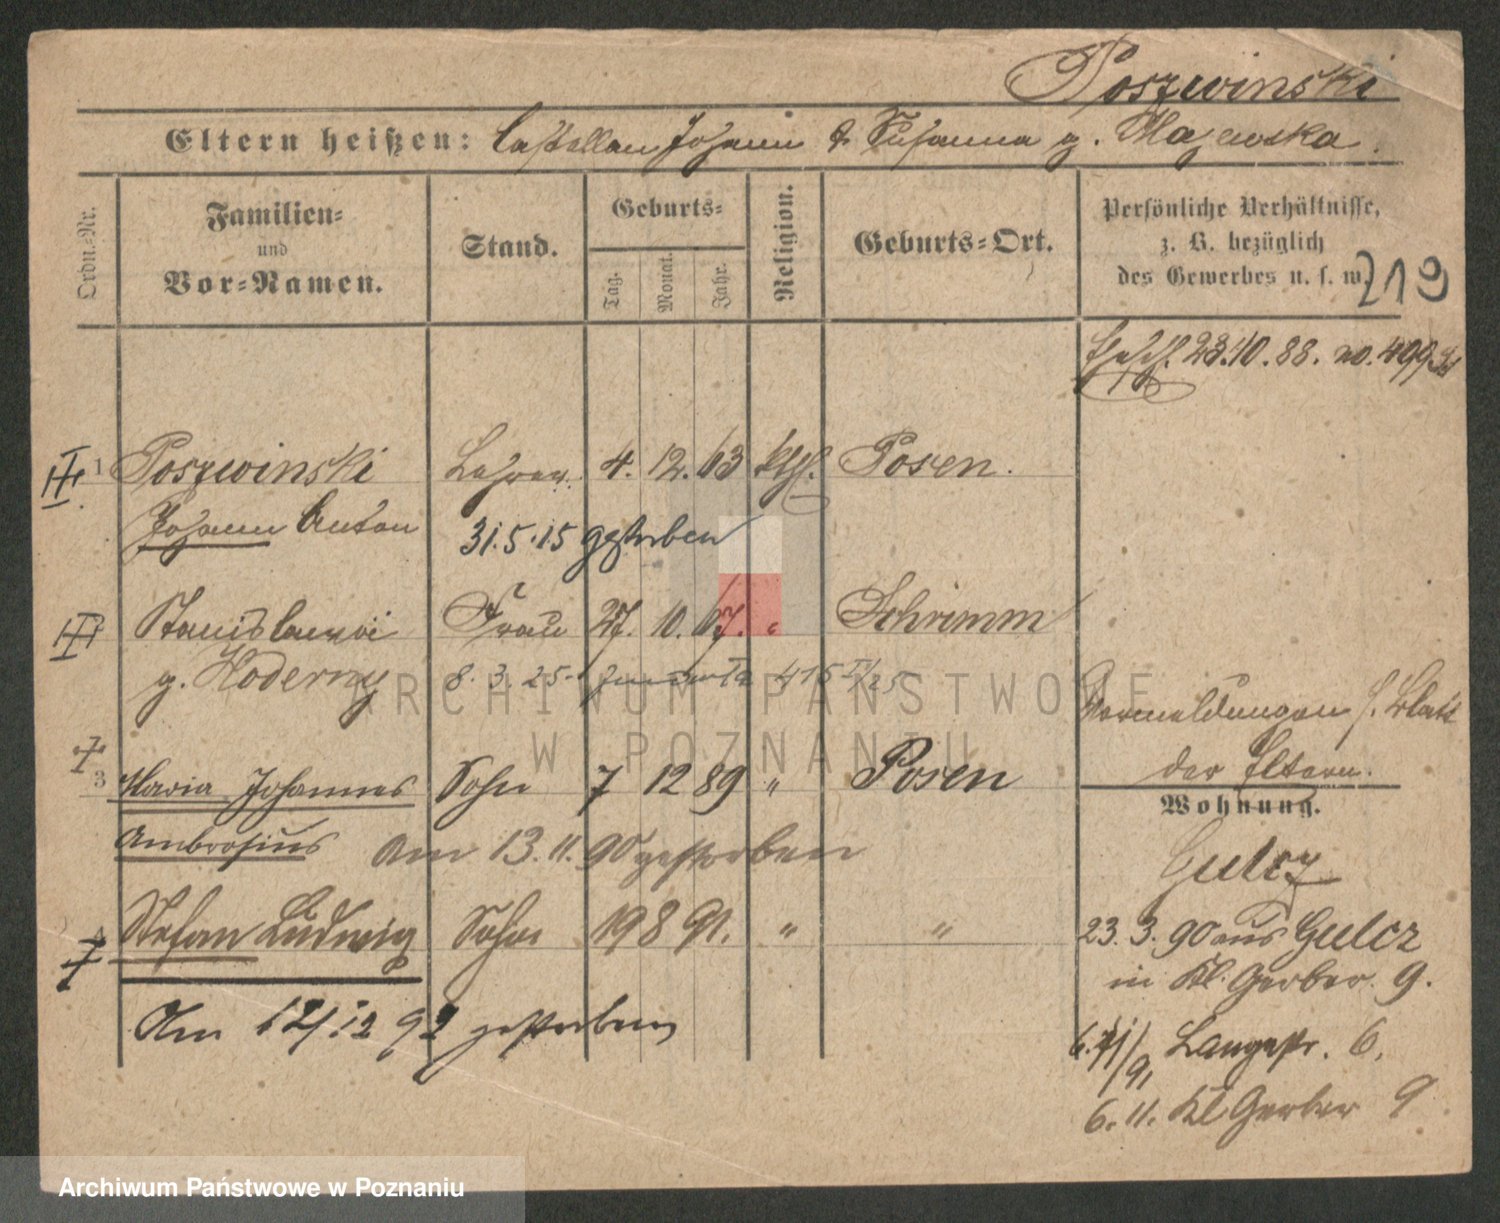 Poszwinski
Eltern heißen: Castellan Johann & Susanna g. Majewska.
Ordn.-Nr.
Familien-
und
Vor-Namen.
Stand.
Geburts-
Tag.
Monat.
Jahr.
Religion.
Geburts-Ort.
Persönliche Verhältnisse,
z. B. bezüglich
des Gewerbes u. s. w.
219
23.10.88. no. 499
1 Poszwinski Lehrer. 4. 12. 63 kthl. Posen.
Johann Anton 31.5.15 gestorben
Stanislawa Frau 27. 10. 67. " Schrimm
g. Koderny 8. 3. 25.
3 Maria Johannes Sohn 7 12 89 " Posen
Ambrosius am 13. 11. 90 gestorben
4 Stefan Ludwig Sohn 19 8 91. " "
Am 12/12 92 gestorben
Vermeldungen s. Blatt
der Eltern.
Wohnung.
Gulcz
23. 3. 90 aus Gulcz
in Kl. Gerber. 9.
Langestr. 6.
6. 11. Kl Gerber 9
ARCHIWUM PAŃSTWOWE
W POZNANIU
Archiwum Państwowe w Poznaniu